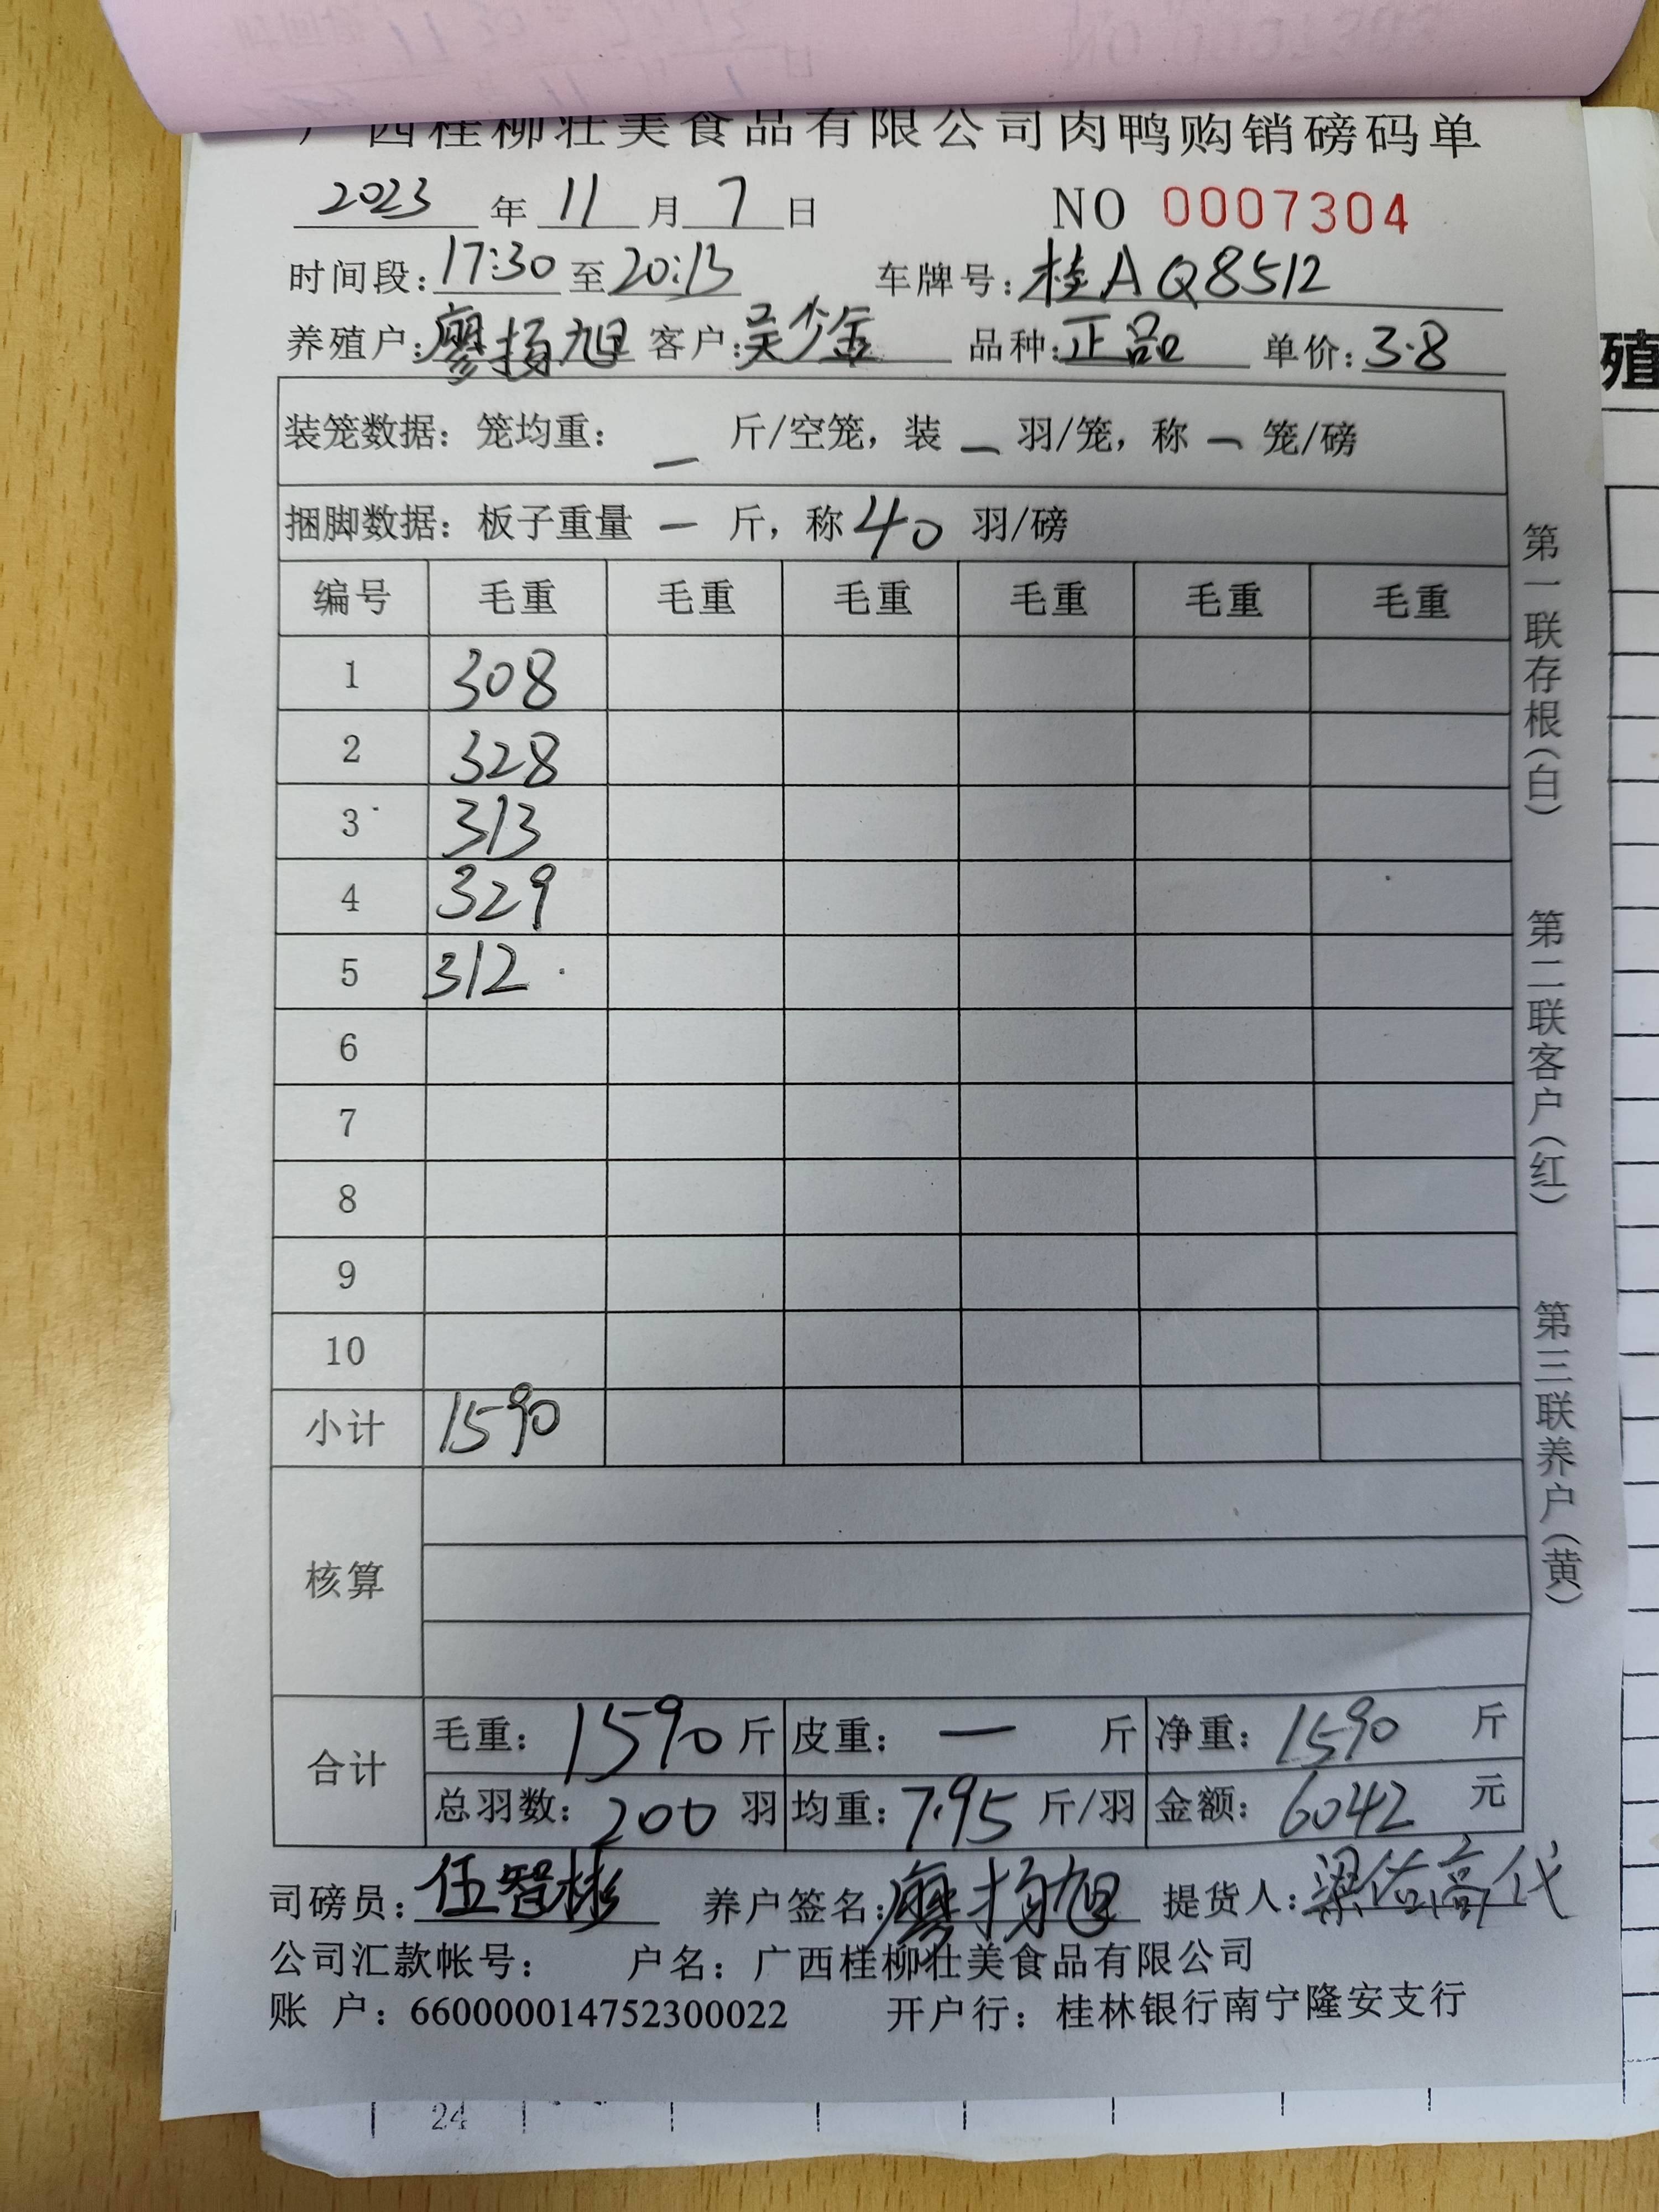 广西桂柳壮美食品有限公司肉鸭购销磅码单
2023 年 11 月 7 日 NO 0007304
时间段: 17:30 至 20:13 车牌号: 桂A Q8512
养殖户: 廖扬旭 客户: 吴少金 品种: 正品 单价: 3.8
装笼数据: 笼均重: — 斤/空笼, 装 — 羽/笼, 称 — 笼/磅
捆脚数据: 板子重量 — 斤, 称 40 羽/磅
编号 毛重 毛重 毛重 毛重 毛重 毛重
1 308
2 328
3 313
4 329
5 312
6
7
8
9
10
小计 1590
核算
合计 毛重: 1590 斤 皮重: — 斤 净重: 1590 斤
总羽数: 200 羽 均重: 7.95 斤/羽 金额: 6042 元
司磅员: 伍智彬 养户签名: 廖扬旭 提货人: 梁佑高代
公司汇款帐号: 户名: 广西桂柳壮美食品有限公司
账 户: 660000014752300022 开户行: 桂林银行南宁隆安支行
第一联存根(白) 第二联客户(红) 第三联养户(黄)
殖
24